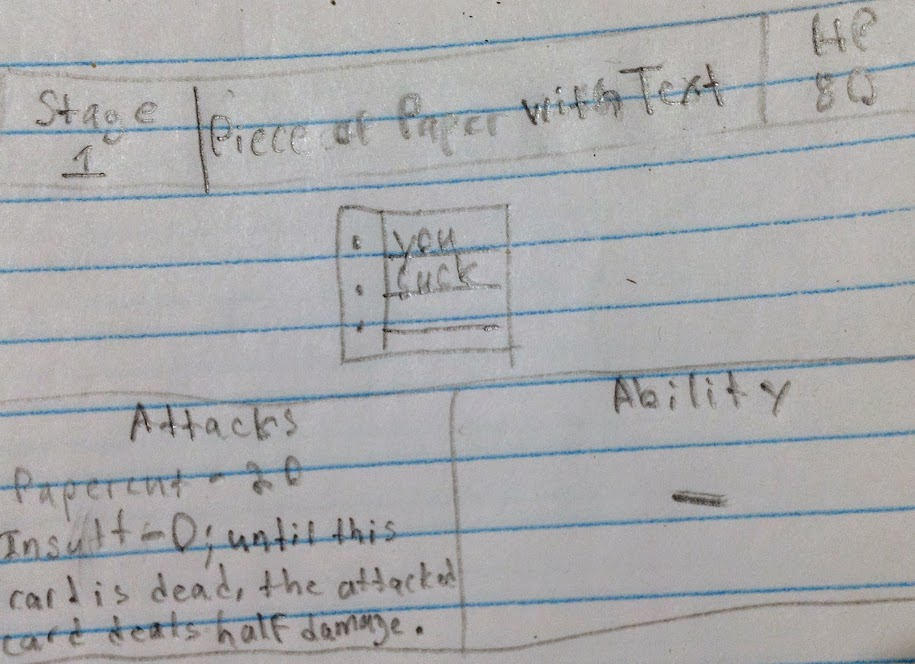 Stage
1
Piece of Paper with Text
HP
80
you
suck
Attacks
Papercut - 20
Insult - 0; until this
card is dead, the attacked
card deals half damage.
Ability
—